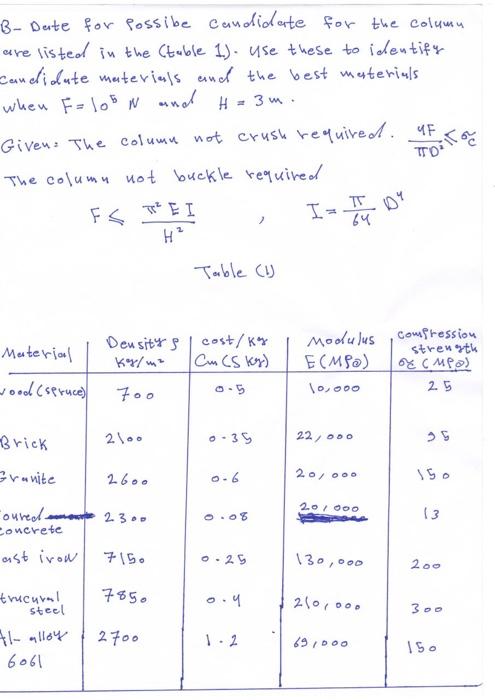 B- Date for Possibe candidate for the column
are listed in the (table 1). Use these to identify
candidate materials and the best materials
when F = 10⁵ N and H = 3 m.
Given: The column not crush required. 4F/πD² ≤ σc
The column not buckle required
F ≤ π² E I / H² , I = π/64 D⁴
Table (1)
Material | Density ρ Kg/m² | cost/Kg Cm ($ Kg) | Modulus E (MPa) | compression strength σc (MPa)
wood (spruce) | 700 | 0.5 | 10,000 | 25
Brick | 2100 | 0.35 | 22,000 | 95
Granite | 2600 | 0.6 | 20,000 | 150
oured concrete | 2300 | 0.08 | 20,000 | 13
ast iron | 7150 | 0.25 | 130,000 | 200
trucural steel | 7850 | 0.4 | 210,000 | 300
Al-alloy 6061 | 2700 | 1.2 | 69,000 | 150